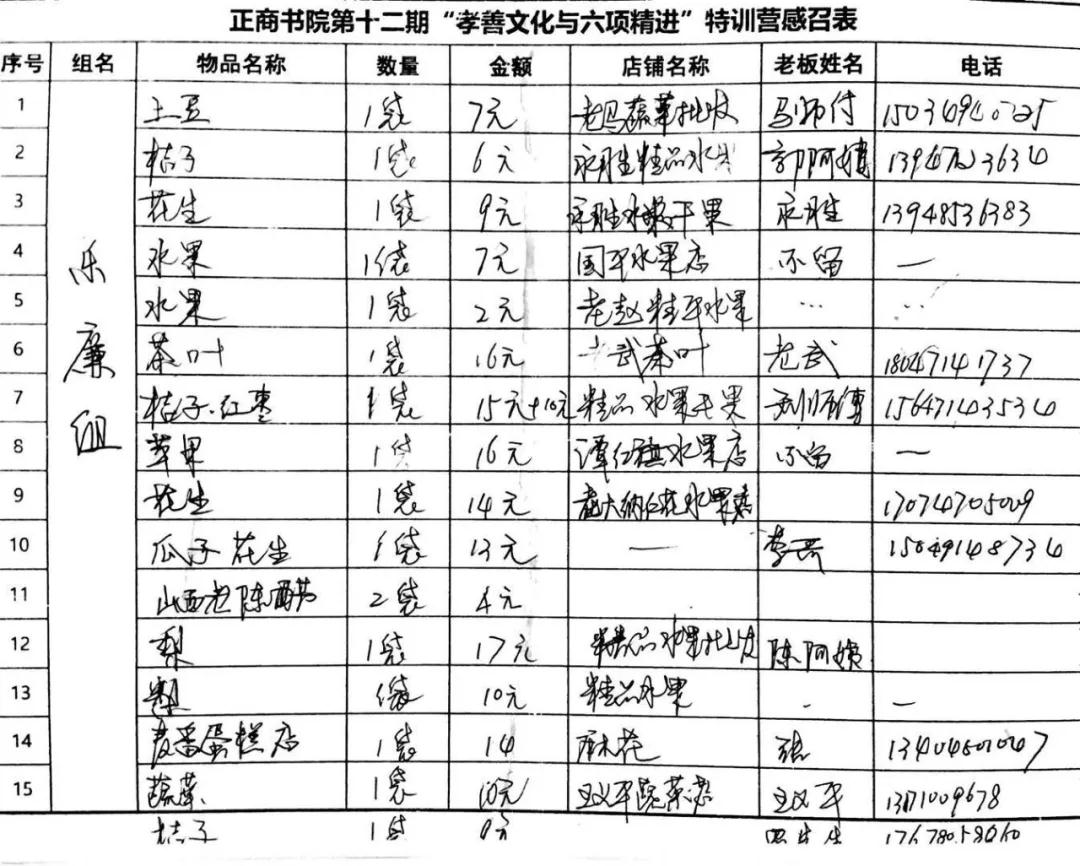 正商书院第十二期“孝善文化与六项精进”特训营感召表
序号 组名 物品名称 数量 金额 店铺名称 老板姓名 电话
1 土豆 1袋 7元 老马蔬菜批发 马师付
2 桔子 1袋 6元 永胜精品水 郭阿姨
3 花生 1袋 9元 永胜水干果 永胜 13948536383
4 水果 1袋 7元 国平水果店 不留 —
5 水果 1袋 2元 老赵精平水果 … …
6 茶叶 1袋 16元 武茶叶 老武 18047141737
7 桔子.红枣 1袋 15元+10元 精品水果干果 15647143534
8 苹果 1袋 16元 水果店 不留 —
9 花生 1袋 14元 水果店 17074705009
10 瓜子 花生 1袋 13元 — 15049148734
11 山西老陈醋 2袋 4元
12 梨 1袋 17元 品水果批发 陈阿姨
13 梨 1袋 10元 精品水果 - —
14 蛋糕店 1袋 14 麻花 张
15 蔬菜 1袋 10元 平蔬菜店 平
乐廉组
桔子 1袋